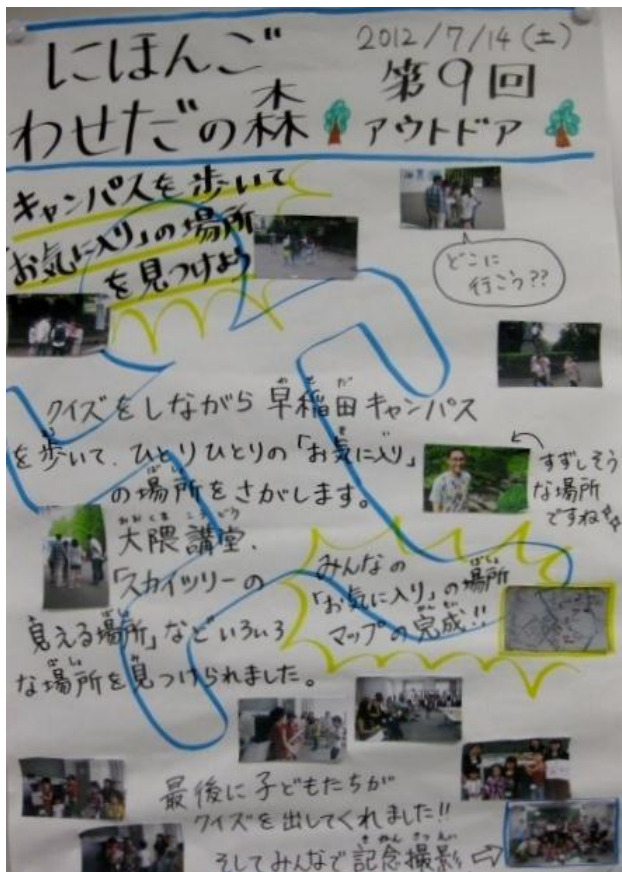 にほんご
わせだの森
2012/7/14(土)
第9回
アウトドア
キャンパスを歩いて
「お気に入り」の場所
を見つけよう
どこに
行こう??
クイズをしながら早稲田キャンパス
を歩いて、ひとりひとりの「お気に入り」
の場所をさがします。
すずしそう
な場所
ですね
大隈講堂、
「スカイツリーの
見える場所」などいろいろ
な場所を見つけられました。
みんなの
「お気に入り」の場所
マップの完成!!
最後に子どもたちが
クイズを出してくれました!!
そしてみんなで記念撮影⇨